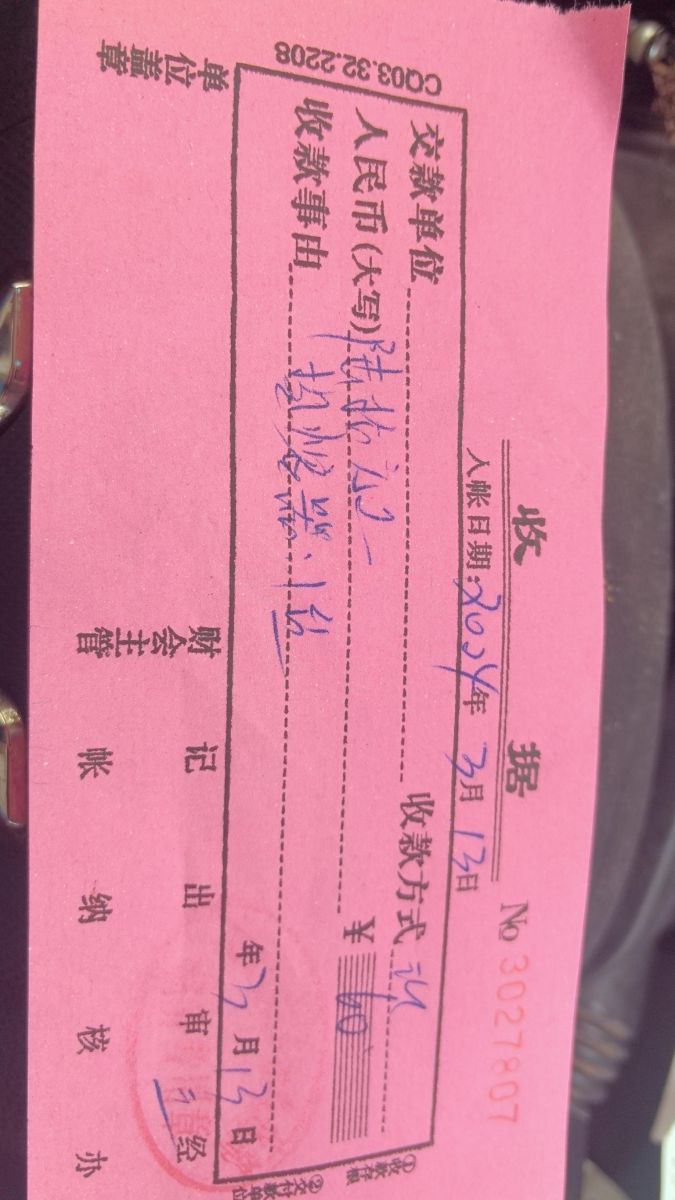 收 据
No 3027807
入帐日期:2024年3月13日
交款单位 收款方式
人民币(大写)陆拾元 ¥ 60
收款事由
年3月13日
CQ03.32.2208
①收款存根
②交付款单位
单位盖章 财会主管 记帐 出纳 审核 经办